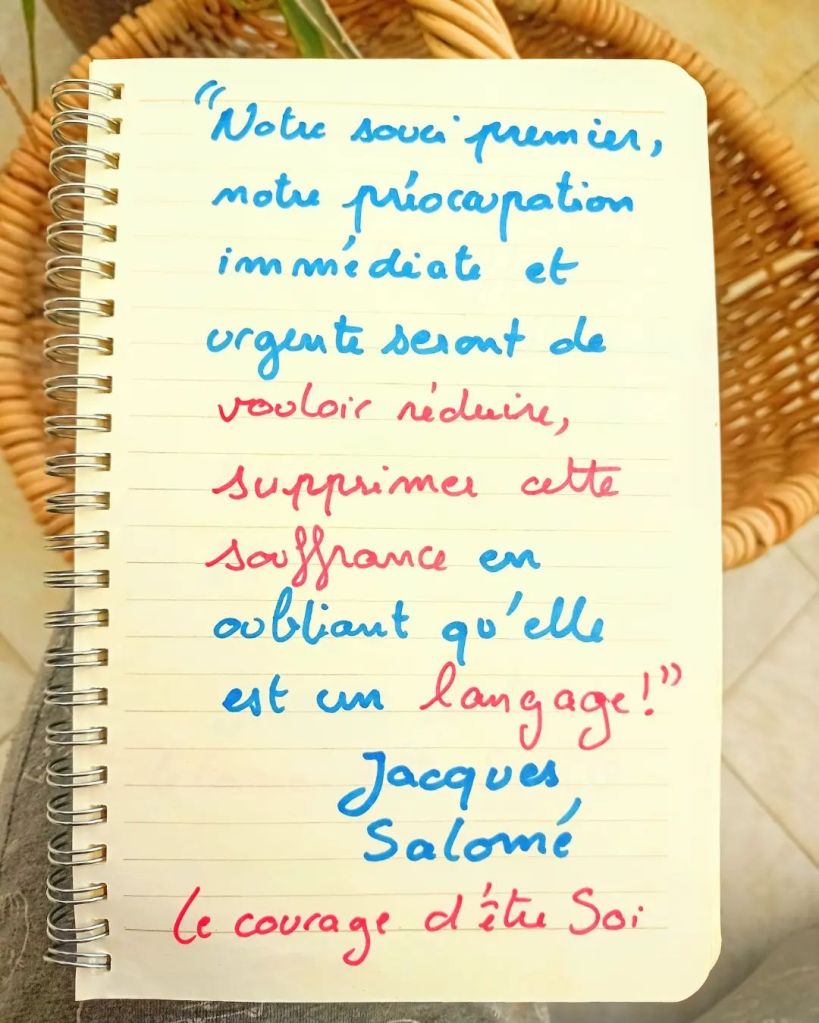 "Notre souci premier,
notre préocupation
immédiate et
urgente seront de
vouloir réduire,
supprimer cette
souffrance en
oubliant qu'elle
est un langage!"
Jacques
Salomé
Le courage d'être Soi